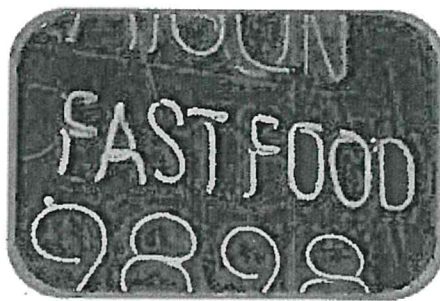 FAST FOOD
9898